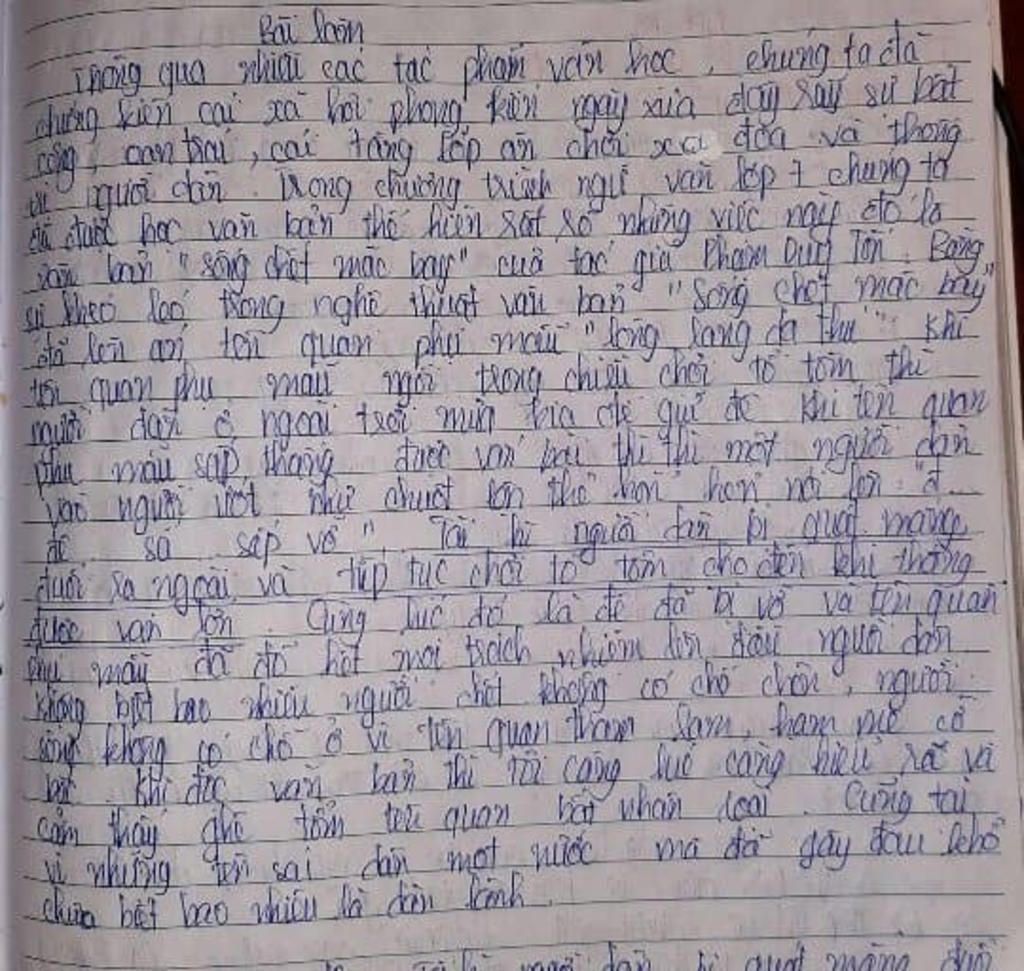 Bài làm
Thông qua nhiều các tác phẩm văn học, chúng ta đã
chứng kiến cái xã hội phong kiến ngày xưa đầy rẫy sự bất
công, oan trái, cái tầng lớp ăn chơi xa đọa và thống
trị người dân. Trong chương trình ngữ văn lớp 7 chúng ta
đã được học văn bản thể hiện sát số những việc này đó là
văn bản "sống chết mặc bay" của tác giả Phạm Duy Tốn. Bằng
sự khéo léo trong nghệ thuật văn bản "sống chết mặc bay"
đã lên án tên quan phụ mẫu "lòng lang dạ thú". Khi
tên quan phụ mẫu ngồi trong chiếu chơi tổ tôm thì
người dân ở ngoài trời mưa kia để giữ đê. Khi tên quan
phụ mẫu sắp thắng được ván bài thì thì một người dân
vào người ướt như chuột lột thở hơn hơn nói lớn "đ...
đê sa sắp vỡ". Tái hi người dân bị quát mắng
đuổi ra ngoài và tiếp tục chơi tổ tôm cho đến khi thắng
được ván lớn. Cùng lúc đó là đê đã bị vỡ và tên quan
phụ mẫu đã đổ hết mọi trách nhiệm lên đầu người dân
không biết bao nhiêu người chết không có chỗ chôn, người
sống không có chỗ ở vì tên quan tham lam, ham mê cờ
bạc. Khi đọc văn bản thì tôi càng lúc càng hiểu rõ và
cảm thấy ghê tởm tên quan bất nhân loại. Cũng tại
vì những tên sai dân một nước mà đã gây đau khổ
chưa biết bao nhiêu là dân lành.
người dân bị quát mắng đuổi